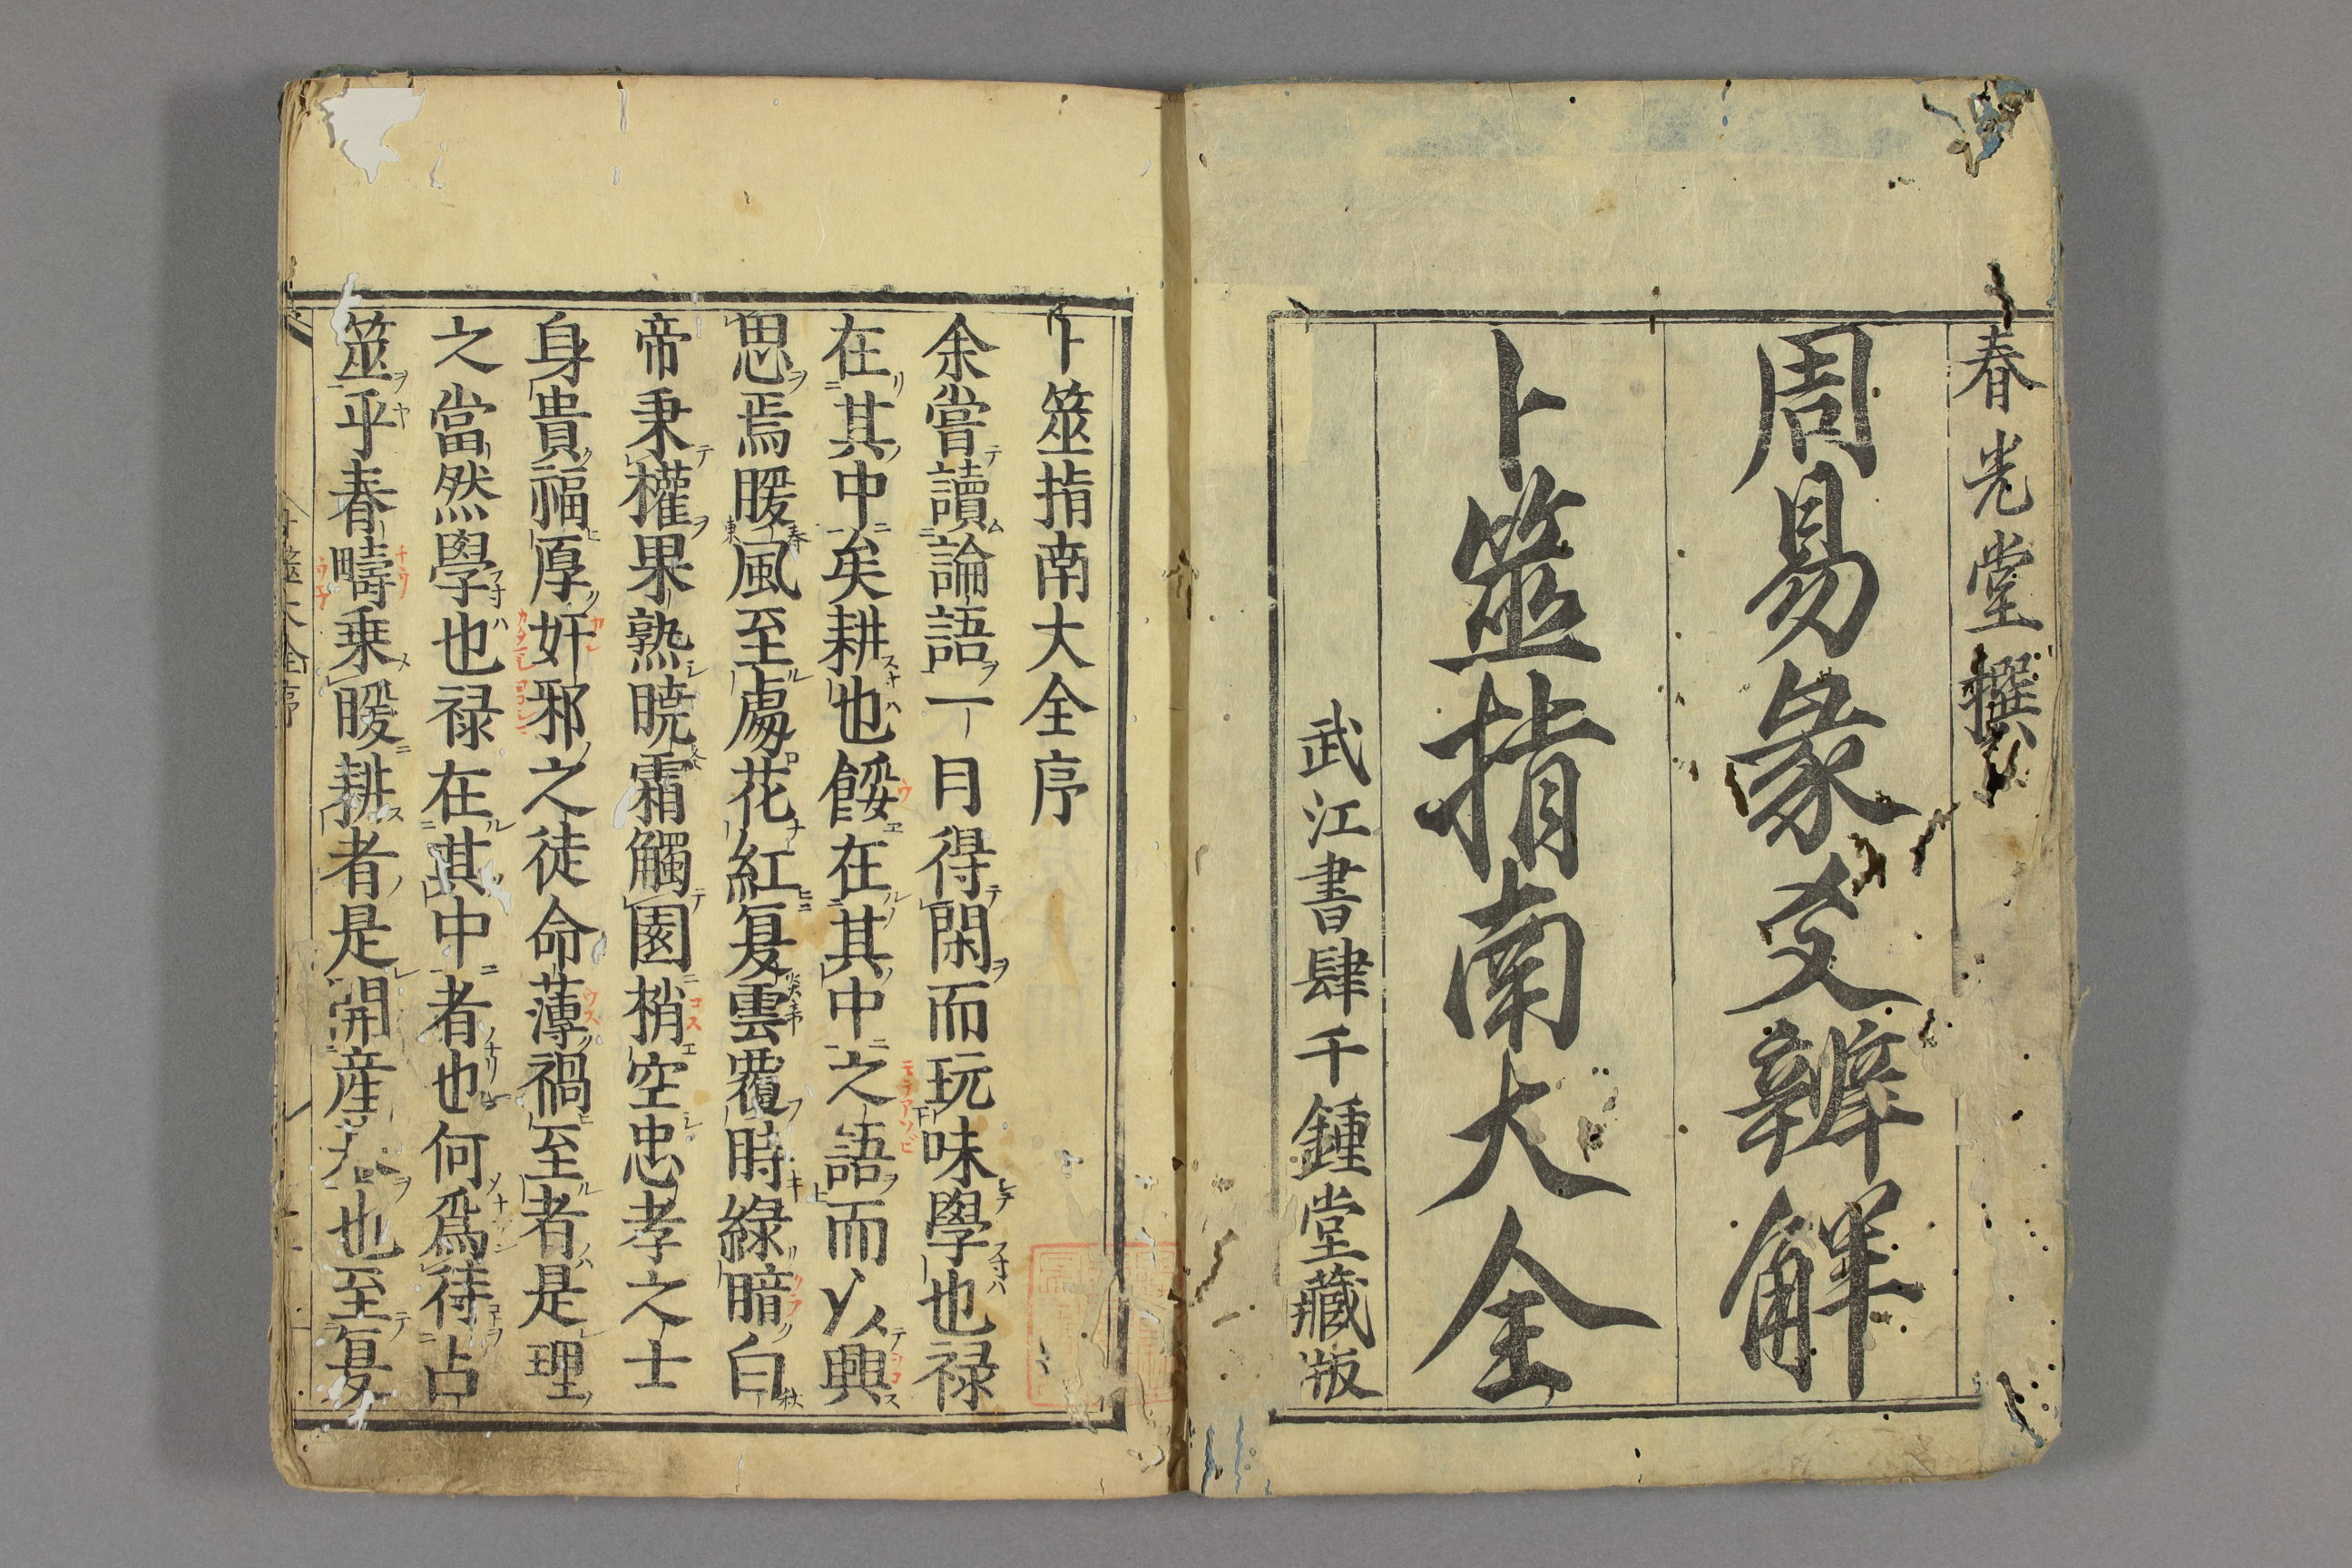 春光堂撰
周易彖爻辨解
卜筮指南大全
武江書肆千鍾堂藏版
卜筮指南大全序
余嘗讀論語一月得閑而玩味學也禄
在其中矣耕也餒在其中之語而以興
思焉暖風至處花紅夏雲覆時綠暗白
帝秉權果熟曉霜觸園梢空忠孝之士
身貴福厚奸邪之徒命薄禍至者是理
之當然學也禄在其中者也何爲待占
筮乎春疇乗暖耕者是開産也至夏